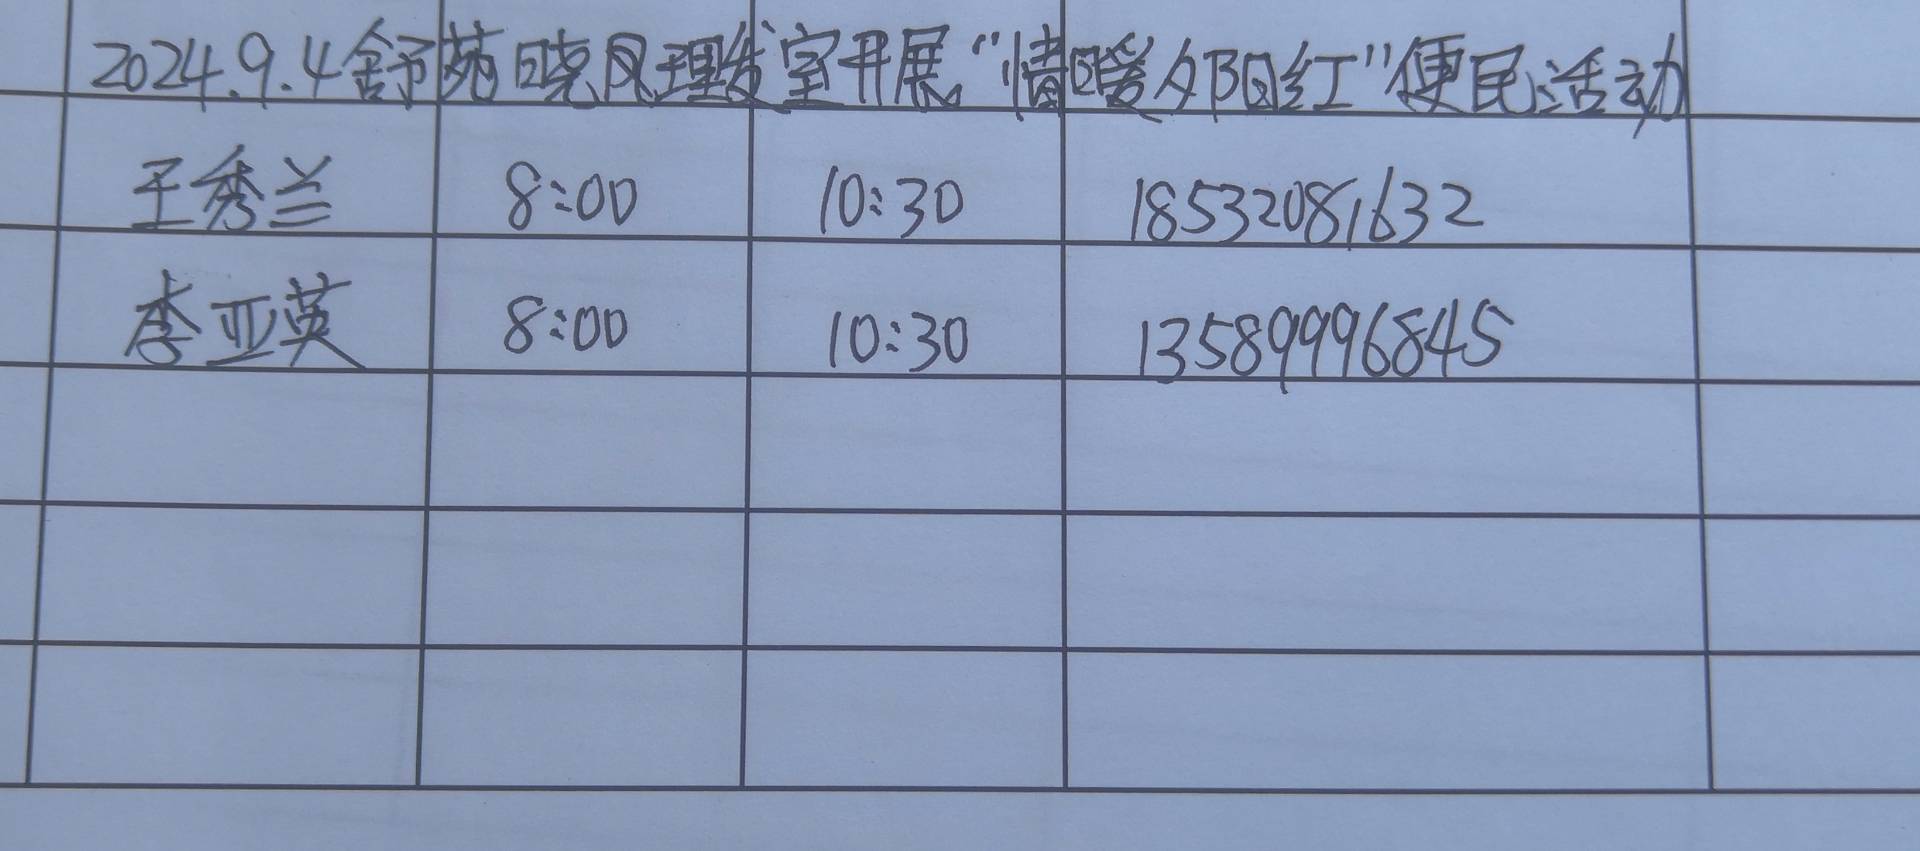 2024.9.4舒苑晓风理发室开展“情暖夕阳红”便民活动
王秀兰 8:00 10:30 18532081632
李亚英 8:00 10:30 13589996845